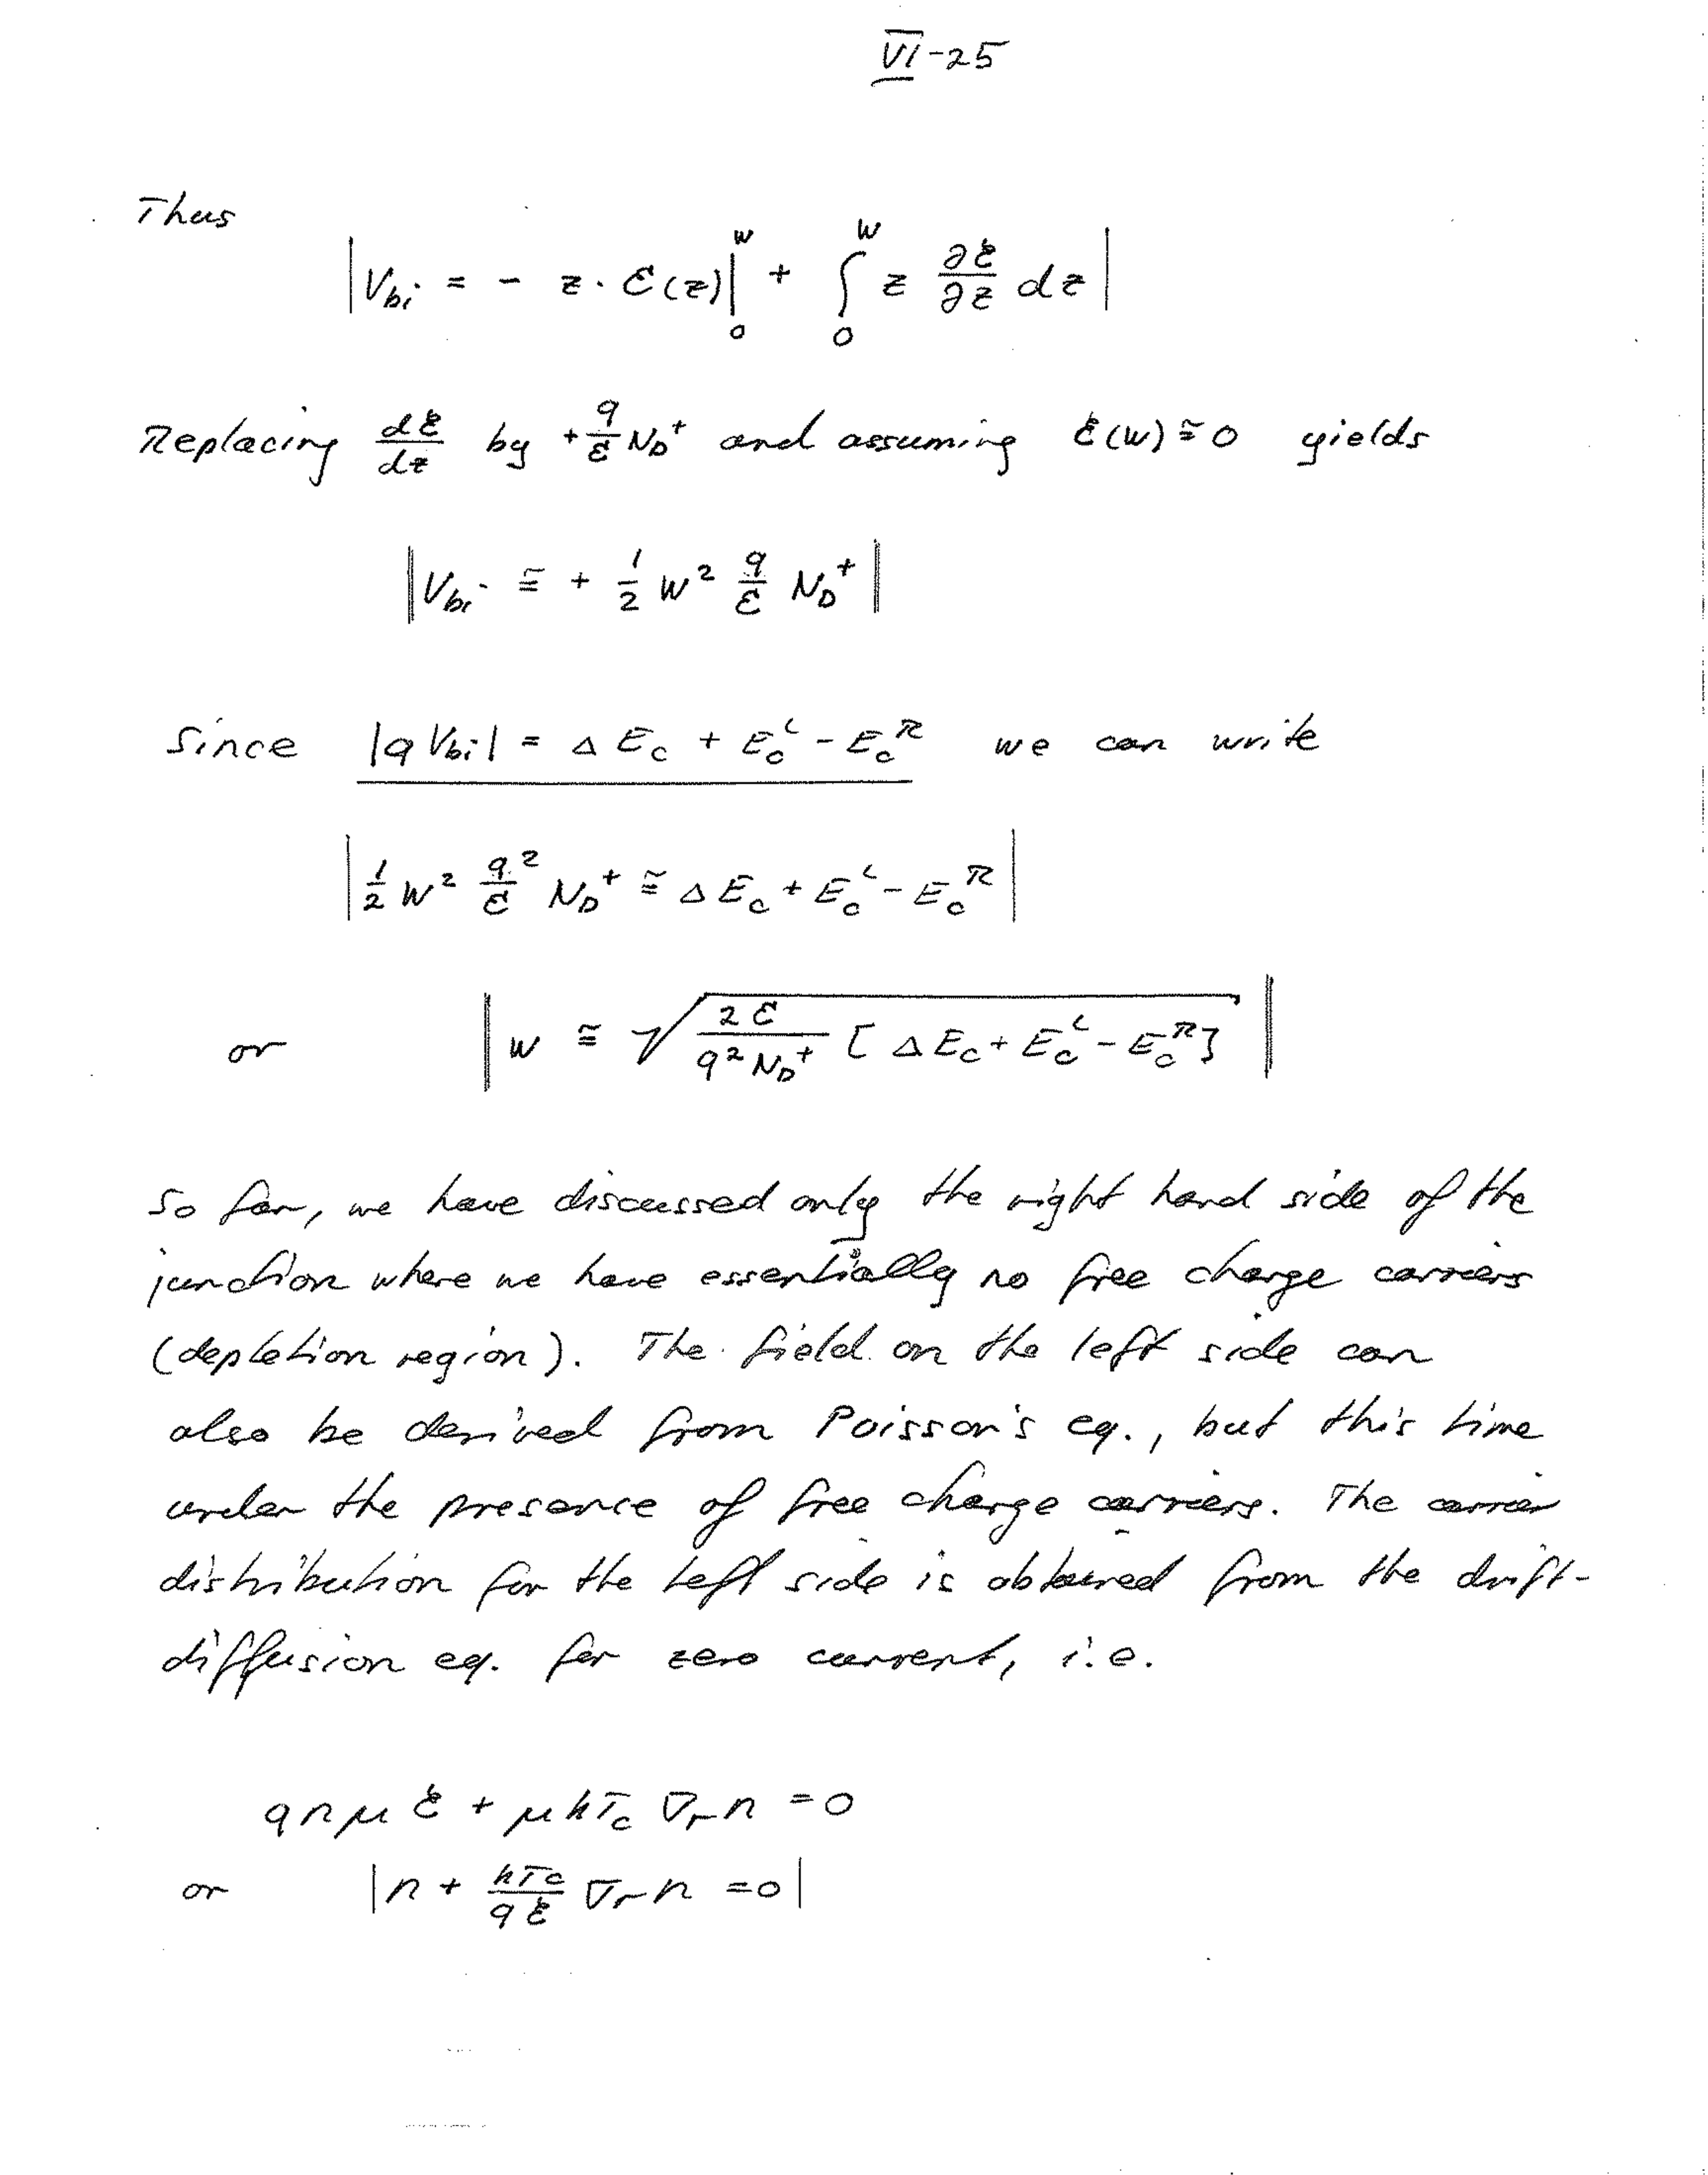 VI-25
Thus
|V_bi = - z · ℰ(z)|_0^W + ∫_0^W z ∂ℰ/∂z dz|
Replacing dℰ/dz by + q/ε N_D^+ and assuming ℰ(W) ≅ 0 yields
‖V_bi ≅ + 1/2 W^2 q/ε N_D^+‖
Since |q V_bi| = Δ E_c + E_c^L - E_c^R we can write
|1/2 W^2 q^2/ε N_D^+ ≅ Δ E_c + E_c^L - E_c^R|
or ‖W ≅ √(2ε/(q^2 N_D^+) [Δ E_c + E_c^L - E_c^R])‖
So far, we have discussed only the right hand side of the
junction where we have essentially no free charge carriers
(depletion region). The field on the left side can
also be derived from Poisson's eq., but this time
under the presence of free charge carriers. The carrier
distribution for the left side is obtained from the drift-
diffusion eq. for zero current, i.e.
q n μ ℰ + μ k T_c ∇_r n = 0
or |n + kT_c/(qℰ) ∇_r n = 0|